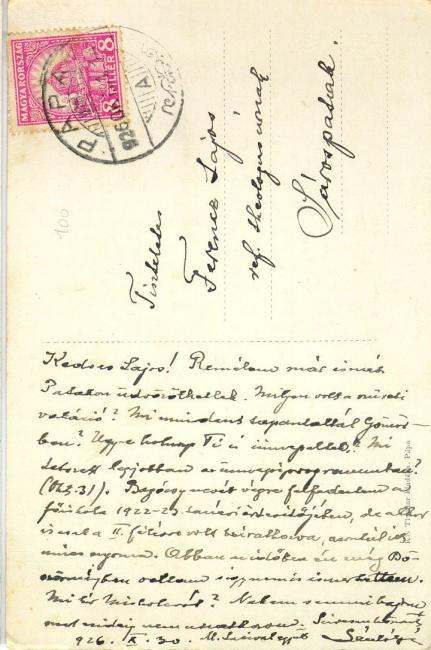 MAGYARORSZÁG
8 FILLÉR 8
PÁPA
926
100
Tiszteletes
Ferencz Lajos
ref. theologus úrnak
Sárospatak.
Kedves Lajos! Remélem már ismét
Patakon üdvözölhetlek. Milyen volt a szüreti
vakáció? Mi mindent tapasztaltál Gömör-
ben? Ugye holnap Ti is ünnepeltek? Mi
tetszett legjobban az ünnepi programmban?
(Okt. 31). nevét végre felfedeztem a
főiskola 1922-23. tanévi értesítőjében, de akkor
is csak a II. félévre volt beiratkozva, azontúl
nincs nyoma. Abban az időben én még Bö-
szörményben voltam s így nem is ismerhettem.
Mi hír Miskolcról? Nekem semmi bajom
926. X. 30.